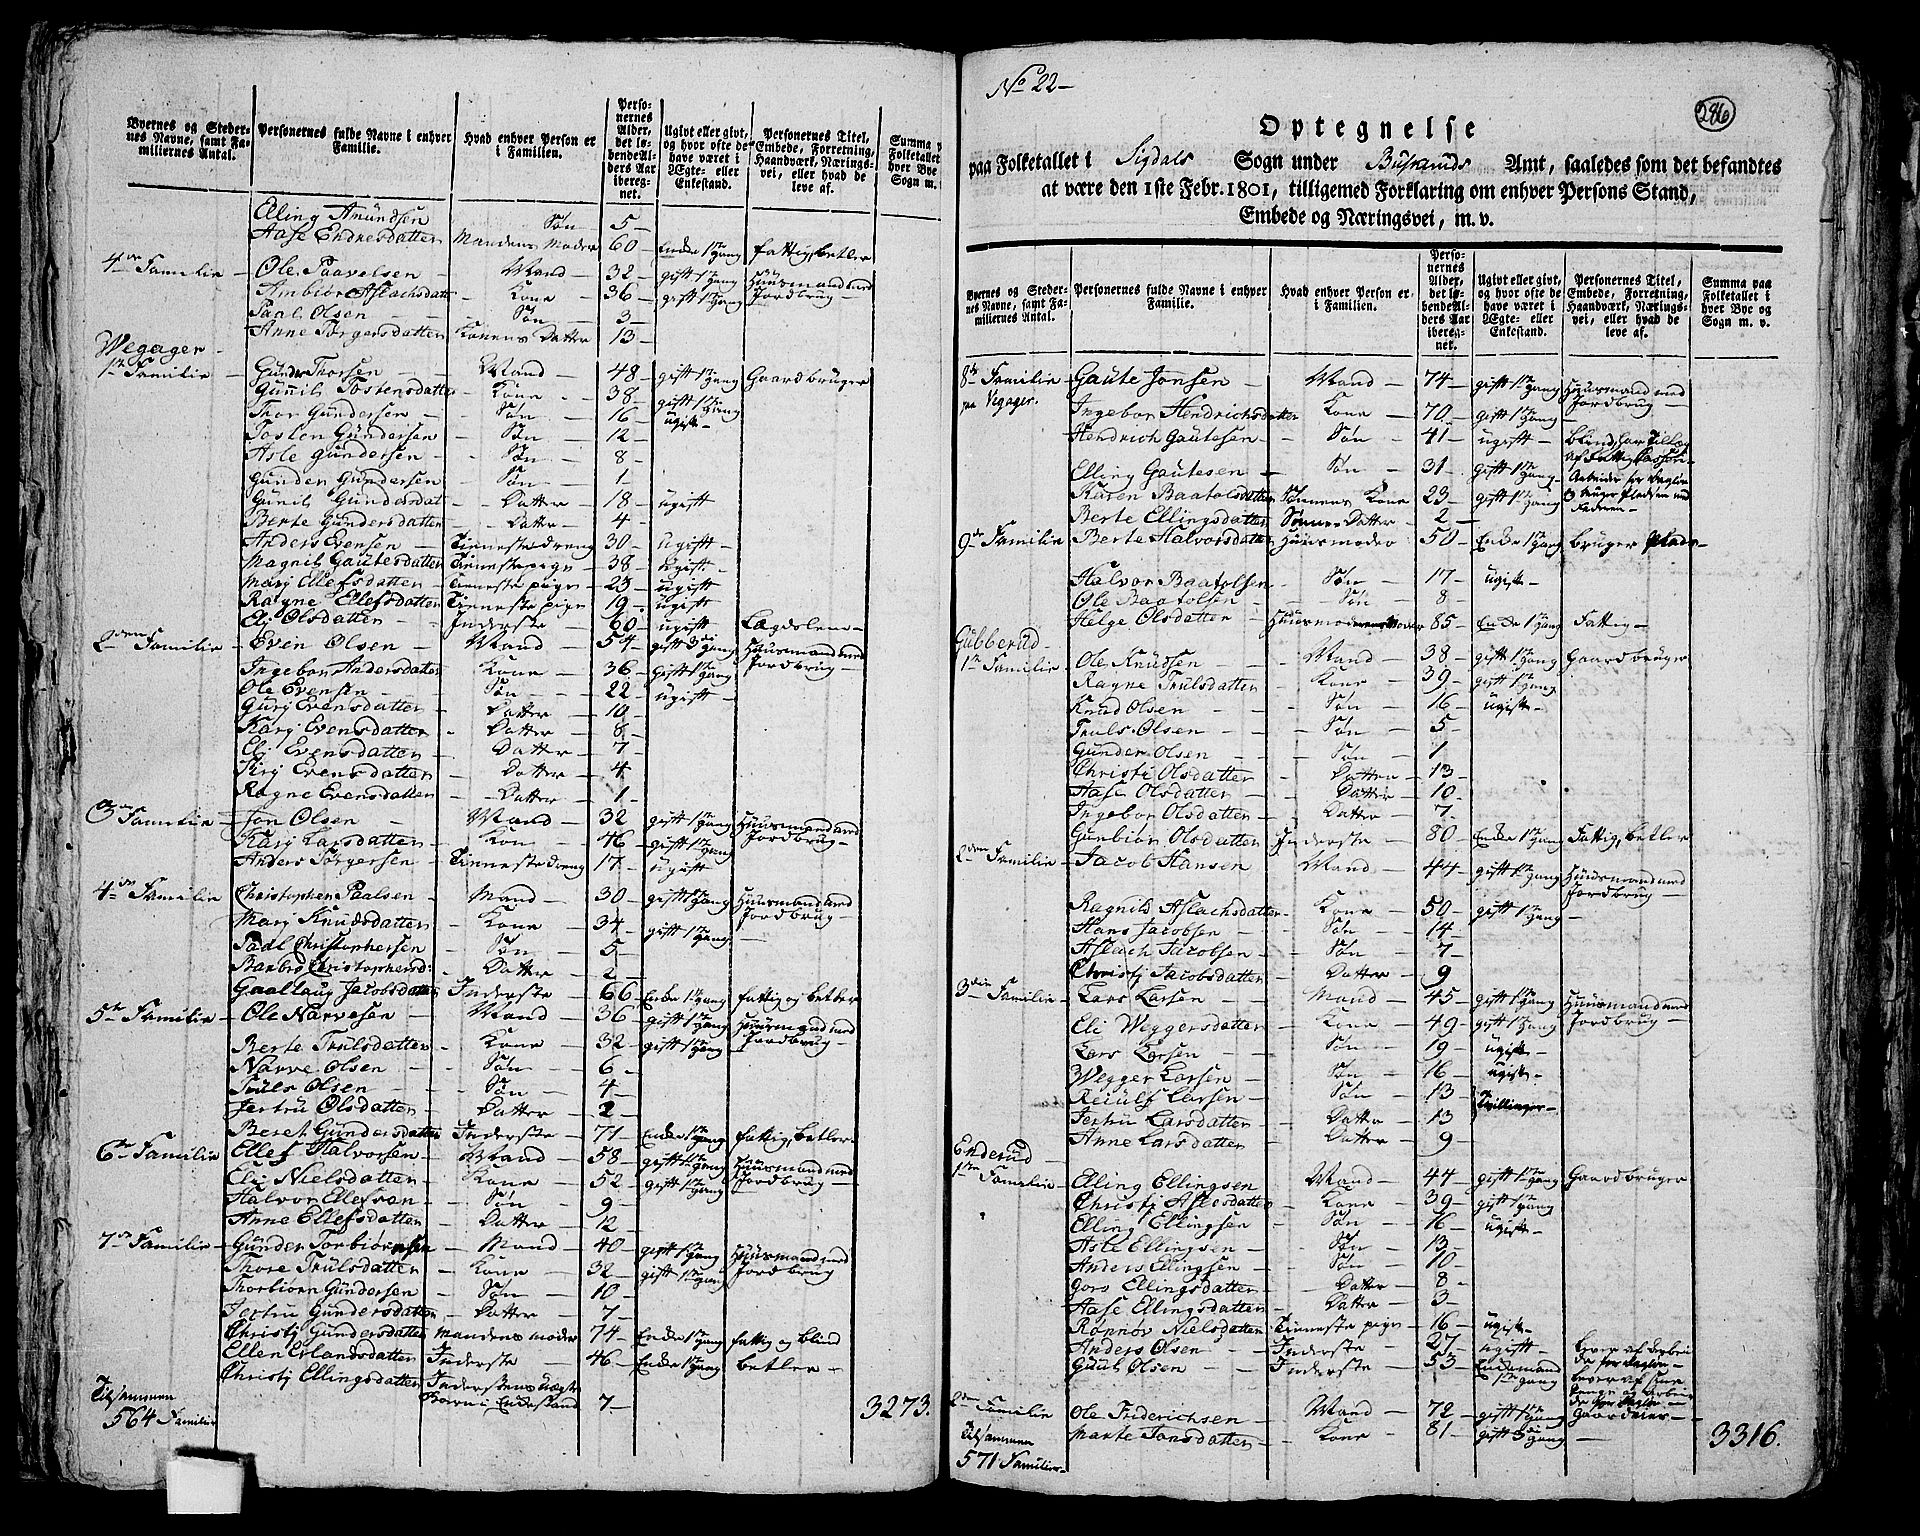 Byernes og Steder-
nes Navne, samt Fa-
miliernes Antal.
Personernes fulde Navne i enhver
Familie.
Hvad enhver Person er
i Familien.
Perso-
nernes
Alder,
det lø-
bende Al-
ders Aar
iberegnet.
Ugivt eller givt,
og hvor ofte de
have været i
Ægte- eller
Enkestand.
Personernes Titel,
Embede, Forretning,
Haandværk, Nærings-
vei, eller hvad de
leve af.
Summa
Folketallet
hver Bye
Sogn m.
Elling Amundsen Søn 5
Aase Endresdatter Mandens Moder 60 Enke 1te Gang fattig, betler
4de Familie Ole Paavelsen Mand 32 gift 1te Gang Huusmand med Jordbrug
Ambiør Aslachsdatt Kone 36 gift 1te Gang
Paal Olsen Søn 3
Anne Torgersdatter Konens Datter 13
Wegager
1te Familie Gunder Thorsen Mand 48 gift 1te Gang Gaardbruger
Gunnil Tostensdatter Kone 38 gift 1te Gang
Thor Gundersen Søn 16 ugift
Tosten Gundersen Søn 12
Asle Gundersen Søn 8
Gunder Gundersen Søn 1
Gunil Gundersdat Datter 18 ugift
Berte Gundersdatter Datter 4
Anders Evensen Tienestedreng 30 ugift
Magnil Gautesdatter Tienestepige 38 ugift
Marj Ellefsdatter Tienestepige 23 ugift
Ragne Ellefsdatter Tienestepige 19 ugift
Eli Olsdatter Inderste 60 ugift Lægdslem
2den Familie Even Olsen Mand 54 gift 3die Gang Huusmand med Jordbrug
Ingebor Andersdatter Kone 36 gift 1te Gang
Ole Evensen Søn 22 ugift
Gurj Evensdatter Datter 10
Karj Evensdatter Datter 8
Eli Evensdatter Datter 7
Kirj Evensdatter Datter 4
Ragne Evensdatter Datter 1
3die Familie Jon Olsen Mand 32 gift 1te Gang Huusmand med Jordbrug
Karj Larsdatter Kone 46 gift 1te Gang
Anders Torgersen Tienestedreng 17 ugift
4de Familie Christopher Paalsen Mand 30 gift 1te Gang Huusmand med Jordbrug
Marj Knudsdatter Kone 34 gift 1te Gang
Paal Christophersen Søn 5
Barbro Christophersd: Datter 2
Gaallaug Jacobsdatter Inderste 66 Enke 1te Gang fattig og betler
5te Familie Ole Narvesen Mand 36 gift 1te Gang Huusmand med Jordbrug
Berte Trulsdatter Kone 32 gift 1te Gang
Narve Olsen Søn 6
Truls Olsen Søn 4
Jertru Olsdatter Datter 2
Beret Gundersdatter Inderste 71 Enke 1te Gang fattig, betler
6te Familie Ellef Halvorsen Mand 58 gift 1te Gang Huusmand med Jordbrug
Eli Nielsdatter Kone 52 gift 1te Gang
Halvor Ellefsen Søn 9
Anne Ellefsdatter Datter 12
7de Familie Gunder Torbiørnsen Mand 40 gift 1te Gang Huusmand med Jordbrug
Thore Trulsdatter Kone 32 gift 1te Gang
Thorbiørn Gundersen Søn 10
Jertru Gundersdatter Datter 7
Christj Gundersdatter Mandens Moder 74 Enke 1te Gang fattig og blind
Ellen Erlandsdatter Inderste 46 Enke 1te Gang betler
Christj Ellingsdatter Inderstens Uægte Barn i Enkestand 7
Tilsammen
564 Familier 3273.
No 22
286
Optegnelse
paa Folketallet i Sigdals Sogn under Buskeruds Amt, saaledes som det befandtes
at være den 1ste Febr. 1801, tilligemed Forklaring om enhver Persons Stand,
Embede og Næringsvei, m. v.
Byernes og Steder-
nes Navne, samt Fa-
miliernes Antal.
Personernes fulde Navne i enhver
Familie.
Hvad enhver Person er
i Familien.
Perso-
nernes
Alder,
det lø-
bende Al-
ders Aar
iberegnet.
Ugivt eller givt,
og hvor ofte de
have været i
Ægte- eller
Enkestand.
Personernes Titel,
Embede, Forretning,
Haandværk, Nærings-
vei, eller hvad de
leve af.
Summa paa
Folketallet i
hver Bye og
Sogn m. v.
8de Familie Gaute Jonsen Mand 74 gift 1te Gang Huusmand med Jordbrug
paa Vegager. Ingebor Hendrichsdatter Kone 70 gift 1te Gang
Hendrich Gautesen Søn 41 ugift blind, har Tillæg af Fattig Cassen
Elling Gautesen Søn 31 gift 1te Gang Arbeider for Dagløn
Karen Baatolsdatter Sønnens Kone 23 gift 1te Gang & bruger Pladsen med Faderen
Berte Ellingsdatter Sønnens Datter 2
9de Familie Berte Halvorsdatter Huusmoder 50 Enke 1te Gang bruger Plads
Halvor Baatolsen Søn 17 ugift
Ole Baatolsen Søn 8
Helge Olsdatter Huusmoderens Moder 85 Enke 1te Gang Fattig
Gubberud
1te Familie Ole Knudsen Mand 38 gift 1te Gang Gaardbruger
Ragne Trulsdatter Kone 39 gift 1te Gang
Knud Olsen Søn 16 ugift
Truls Olsen Søn 5
Gunder Olsen Søn 1
Christi Olsdatter Datter 13
Aase Olsdatter Datter 10
Ingebor Olsdatter Datter 7
Gunbiør Olsdatter Inderste 80 Enke 1te Gang Fattig, betler
2den Familie Jacob Hansen Mand 44 gift 1te Gang Huusmand med Jordbrug
Ragnil Aslachsdatter Kone 50 gift 1te Gang
Hans Jacobsen Søn 14
Aslach Jacobsen Søn 7
Christj Jacobsdatter Datter 9
3die Familie Lars Larsen Mand 45 gift 1te Gang Huusmand med Jordbrug
Eli Weggersdatter Kone 49 gift 1te Gang
Lars Larsen Søn 19 ugift
Wegger Larsen Søn 16 ugift
Reiulf Larsen Søn 13 Tvillinger
Jertru Larsdatter Datter 13
Anne Larsdatter Datter 9
Enderud
1te Familie Elling Ellingsen Mand 44 gift 1te Gang Gaardbruger
Christj Aslesdatter Kone 39 gift 1te Gang
Elling Ellingsen Søn 16 ugift
Asle Ellingsen Søn 13
Anders Ellingsen Søn 10
Gors Ellingsdatter Datter 8
Aase Ellingsdatter Datter 3
Rønnøv Nielsdatter Tieneste pige 16 ugift
Anders Olsen Inderste 27 ugift lever af Arbeide for Dagløn
Guul Olsen Inderste 53 Enkemand 1te Gang lever af sine Penge og arbeide for Dagløn
2den Familie Ole Friderichsen Mand 72 gift 1te Gang Gaardeier
Marte Jansdatter Kone 81 gift 3die Gang
Tilsammen
571 Familier 3316.